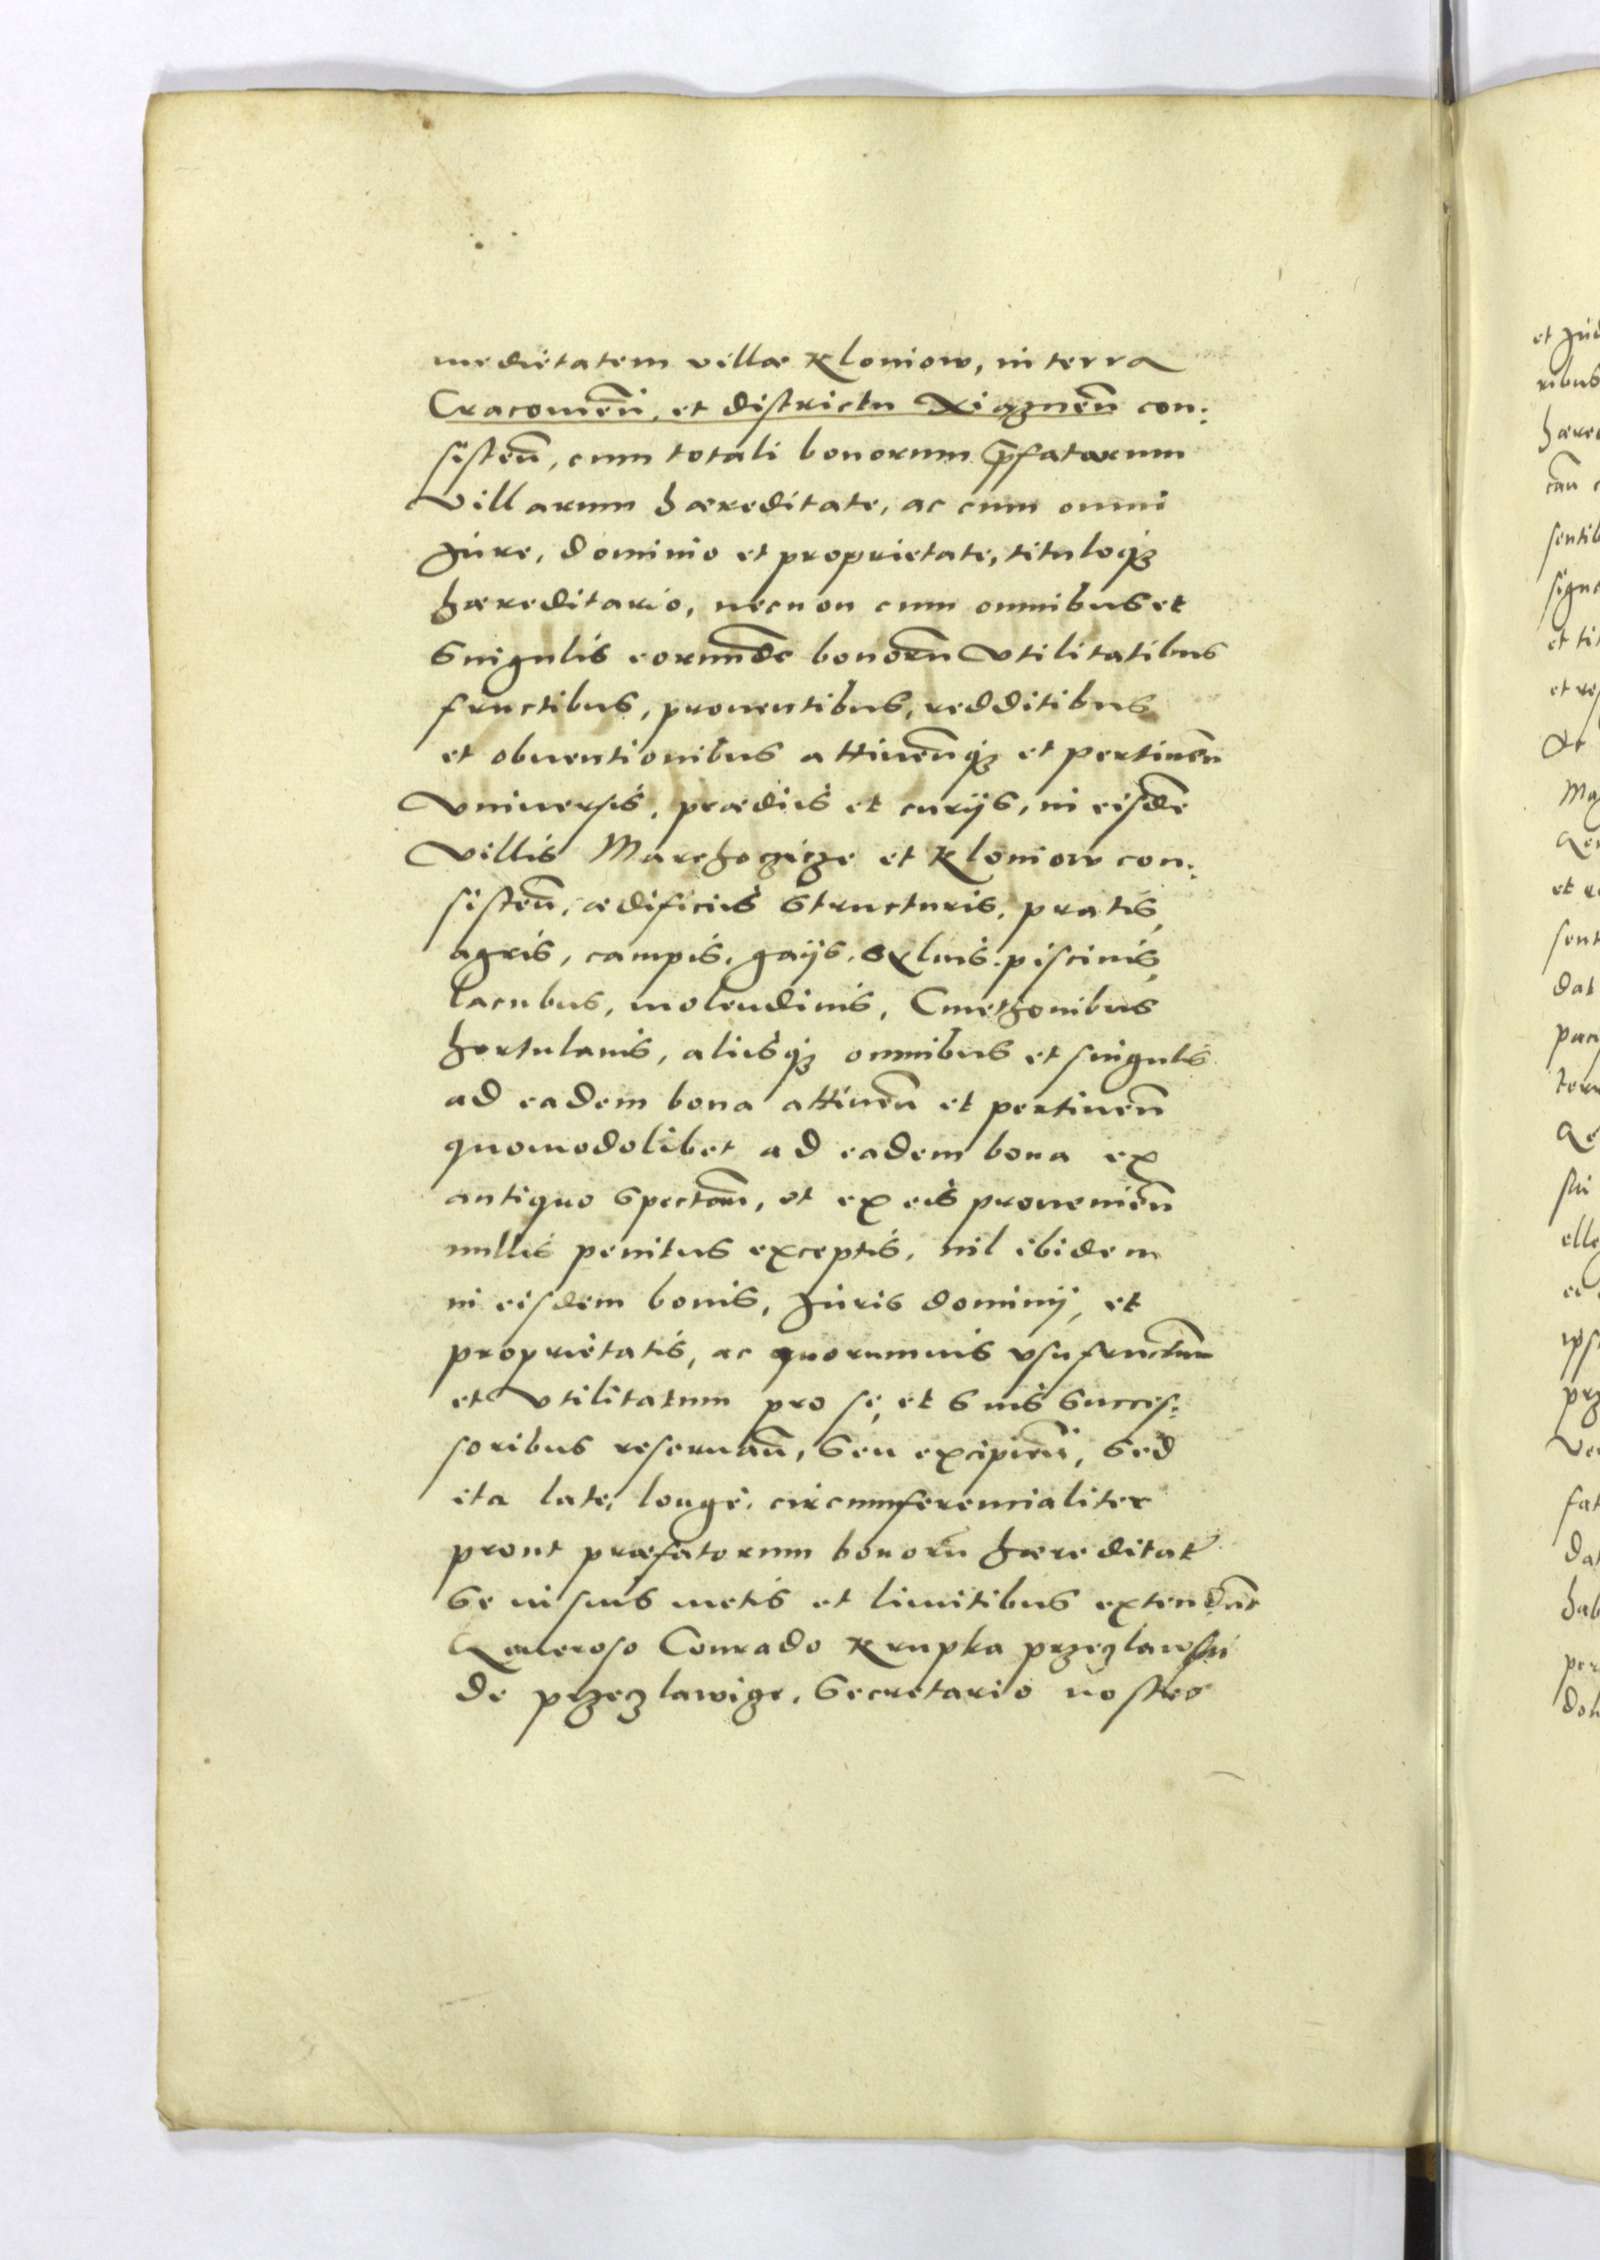 medietatem villæ Kloniow, in terra
Cracouien̄, et districtu Xiąznen̄ con:
sisten̄, cum totali bonorum p̄fatarum
Villarum hæreditate, ac cum omni
Jure, dominio et proprietate, tituloq;
hæreditario, necnon cum omnibus et
Singulis eorunde bonorū Vtilitatibus
fructibus, prouentibus, redditibus
et obuentionibus attinen̄q; et pertinen̄
Vniuersis, prædiis et curijs, in eisde
Villis Marchoczicze et Kloniow con:
sisten̄, ædificiis Structuris, pratis,
agris, campis, gaijs, syluis, piscinis,
lacubus, molendinis, Cmethonibus
hortulanis, aliisq; omnibus et singulis
ad eadem bona attinen̄ et pertinen̄
quomodolibet ad eadem bona ex
antiquo Spectan̄, et ex eis prouenien̄
nullis penitus exceptis, nil ibidem
in eisdem bonis, Juris dominij, et
proprietatis, ac quorumuis vsufructuū
et Vtilitatum pro se, et Suis Succes:
soribus reseruan̄, Seu excipien̄, Sed
ita late, longè, circumferencialiter
prout præfatorum bonorū hæreditat͛
Se in suis metis et limitibus extendūt
Generoso Conrado Krupka przeczlawski
de przeczlawicze, Secretario nostro
et Jud
ribus
hæred
can̄
sentib
signa
et tit
et re
Ma
et
sent
dat
pac
terr
Ge
sui
elle
ips
prz
Ve
fat
dat
hab
per